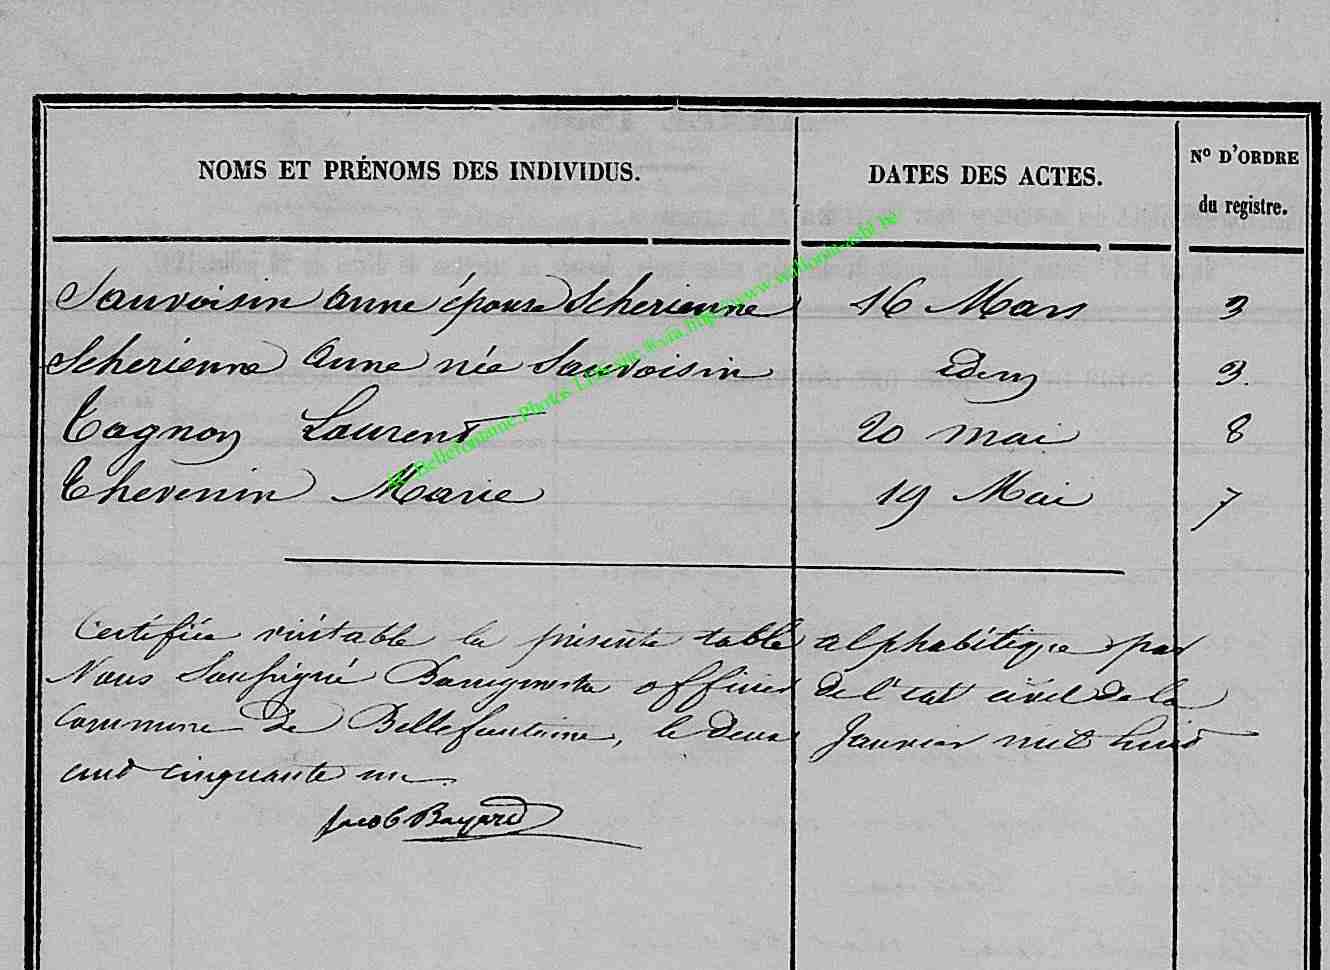 NOMS ET PRÉNOMS DES INDIVIDUS. DATES DES ACTES. N° D'ORDRE
du registre.
Sauvoisin Anne épouse Scherienne 16 Mars 3
Scherienne Anne née Sauvoisin Idem 3.
Tagnon Laurent 20 mai 8
Thevenin Marie 19 Mai 7
Certifiée véritable la présente table alphabétique par
Nous Soussigné Bourgmestre officier de l'etat civil de la
commune de Bellefontaine, le deux Janvier mil huit
cent cinquante un.
Jacob Bayard
Bellefontaine.Photos